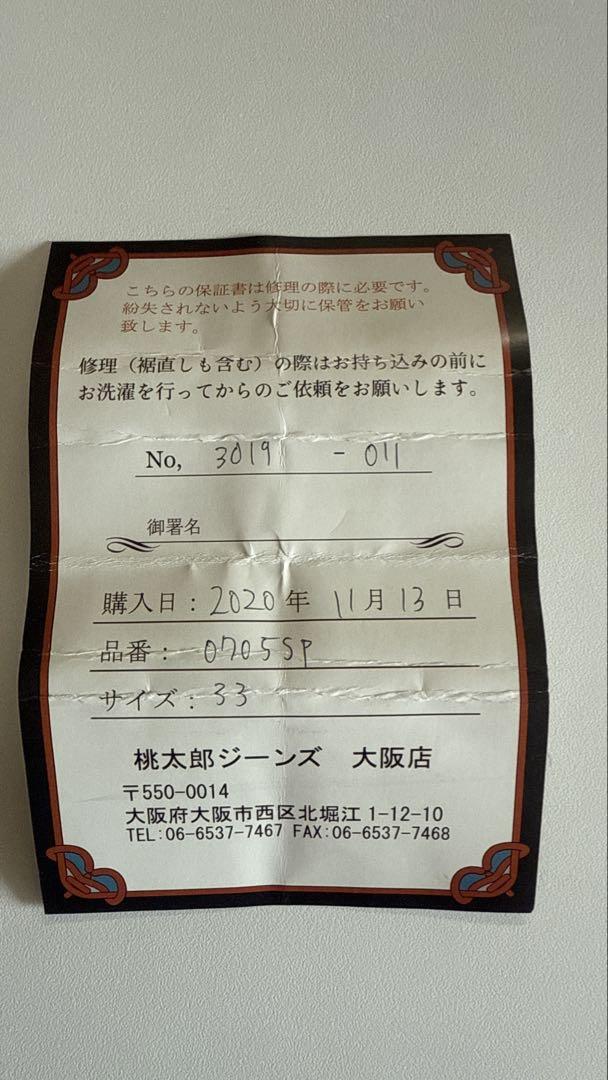 こちらの保証書は修理の際に必要です。
紛失されないよう大切に保管をお願い
致します。
修理（裾直しも含む）の際はお持ち込みの前に
お洗濯を行ってからのご依頼をお願いします。
No, 3019 - 011
御署名
購入日：2020年 11月13日
品番： 0705SP
サイズ：33
桃太郎ジーンズ 大阪店
〒550-0014
大阪府大阪市西区北堀江 1-12-10
TEL:06-6537-7467 FAX:06-6537-7468